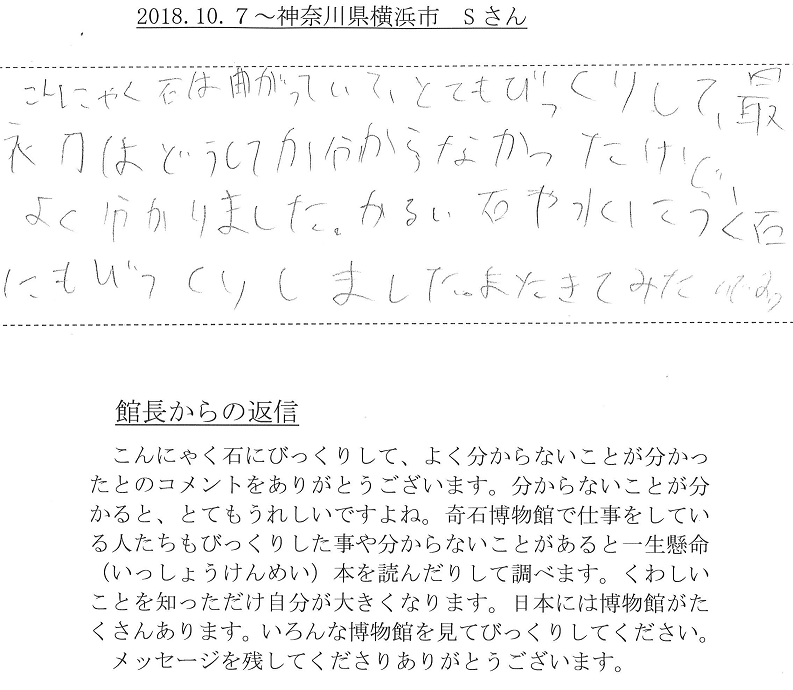 2018.10.7～神奈川県横浜市　Sさん
こんにゃく石は曲がっていて、とてもびっくりして、最
初はどうしてか分からなかったけど、
よく分かりました。かるい石や水にうく石
にもびっくりしました。またきてみたいな
館長からの返信
こんにゃく石にびっくりして、よく分からないことが分かっ
たとのコメントをありがとうございます。分からないことが分
かると、とてもうれしいですよね。奇石博物館で仕事をしてい
る人たちもびっくりした事や分からないことがあると一生懸命
（いっしょうけんめい）本を読んだりして調べます。くわしい
ことを知っただけ自分が大きくなります。日本には博物館がた
くさんあります。いろんな博物館を見てびっくりしてください。
メッセージを残してくださりありがとうございます。